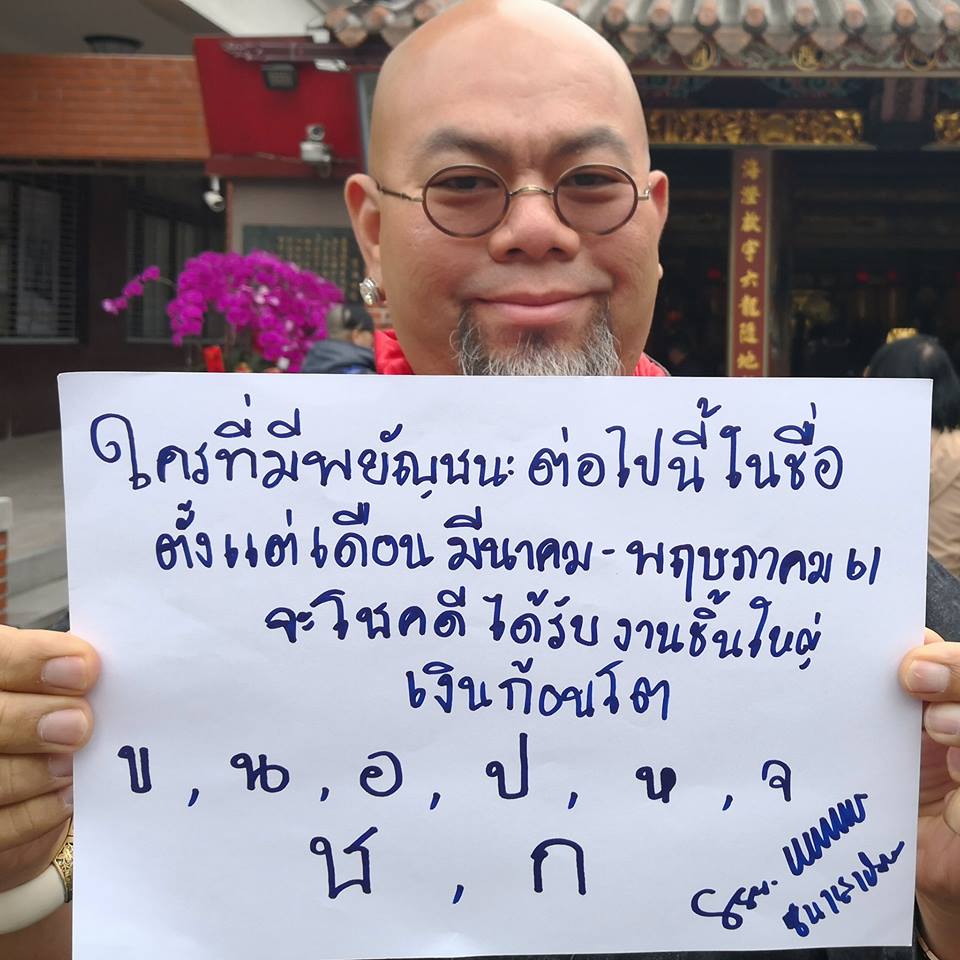 六龍
ใครที่มีพยัญชนะ ต่อไปนี้ ในชื่อ
ตั้งแต่เดือน มีนาคม - พฤษภาคม 61
จะโชคดี ได้รับ งานชิ้นใหญ่
เงินก้อนโต
ข , น , อ , ป , ห , จ
ช , ก